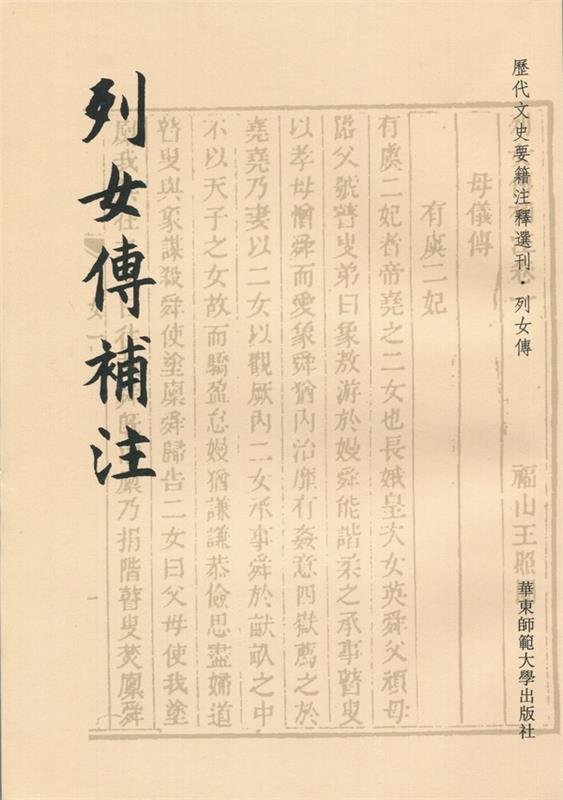 歷代文史要籍注釋選刊·列女傳
華東師範大學出版社
列女傳補注
卷一
福山王照
母儀傳
有虞二妃
有虞二妃者帝堯之二女也長娥皇次女英舜父頑母
嚚父號瞽叟弟曰象敖游於嫚舜能諧柔之承事瞽叟
以孝母憎舜而愛象舜猶內治靡有姦意四嶽薦之於
堯堯乃妻以二女以觀厥內二女承事舜於畎畝之中
不以天子之女故而驕盈怠嫚猶謙謙恭儉思盡婦道
瞽叟與象謀殺舜使塗廩舜歸告二女曰父母使我塗
廩我往廩乃捐階瞽叟焚廩舜